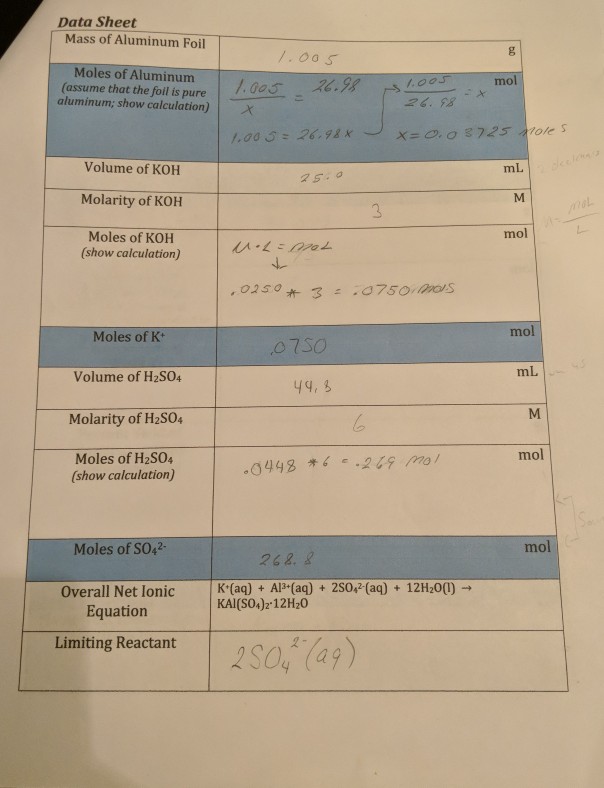 Data Sheet
Mass of Aluminum Foil 1.005 g
Moles of Aluminum
(assume that the foil is pure
aluminum; show calculation)
1.005/x = 26.98 → 1.005/26.98 = x mol
1.005 = 26.98x x = 0.03725 moles
Volume of KOH 25.0 mL
Molarity of KOH 3 M
Moles of KOH
(show calculation)
M·L = mol mol
↓
.0250 * 3 = .0750 mols
Moles of K⁺ .0750 mol
Volume of H₂SO₄ 44.8 mL
Molarity of H₂SO₄ 6 M
Moles of H₂SO₄
(show calculation)
.0448 *6 = .269 mol mol
Moles of SO₄²⁻ 268.8 mol
Overall Net Ionic
Equation
K⁺(aq) + Al³⁺(aq) + 2SO₄²⁻(aq) + 12H₂O(l) →
KAl(SO₄)₂·12H₂O
Limiting Reactant 2SO₄²⁻(aq)
mol
L